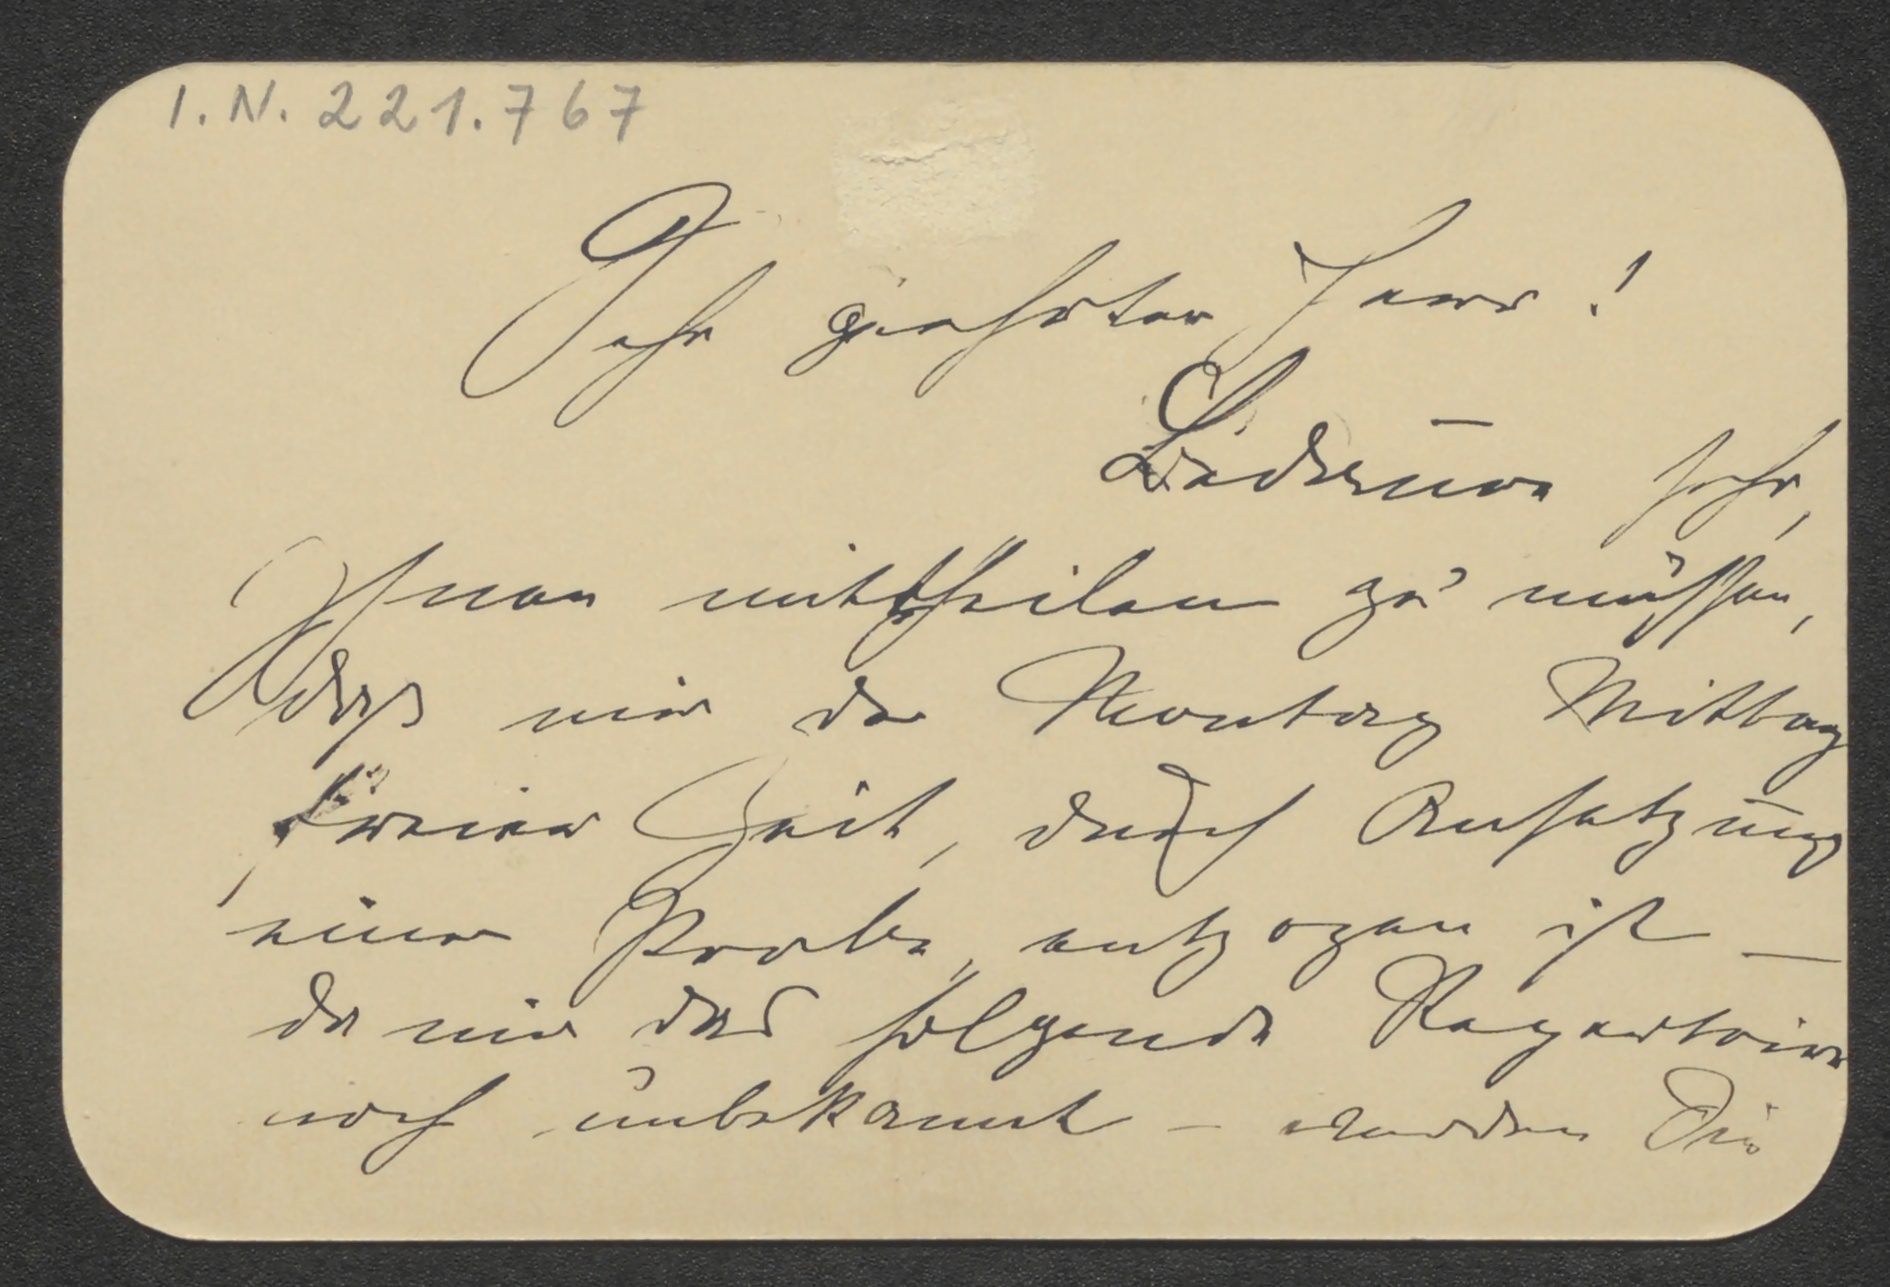 I. N. 221.767
Sehr geehrter Herr!
Bedaure sehr,
Ihnen mittheilen zu müssen,
daß mir der Montag Mittag
freier Zeit, durch Ansetzung
einer Probe, entzogen ist —
da mir das folgende Repertoire
noch unbekannt – werden Sie